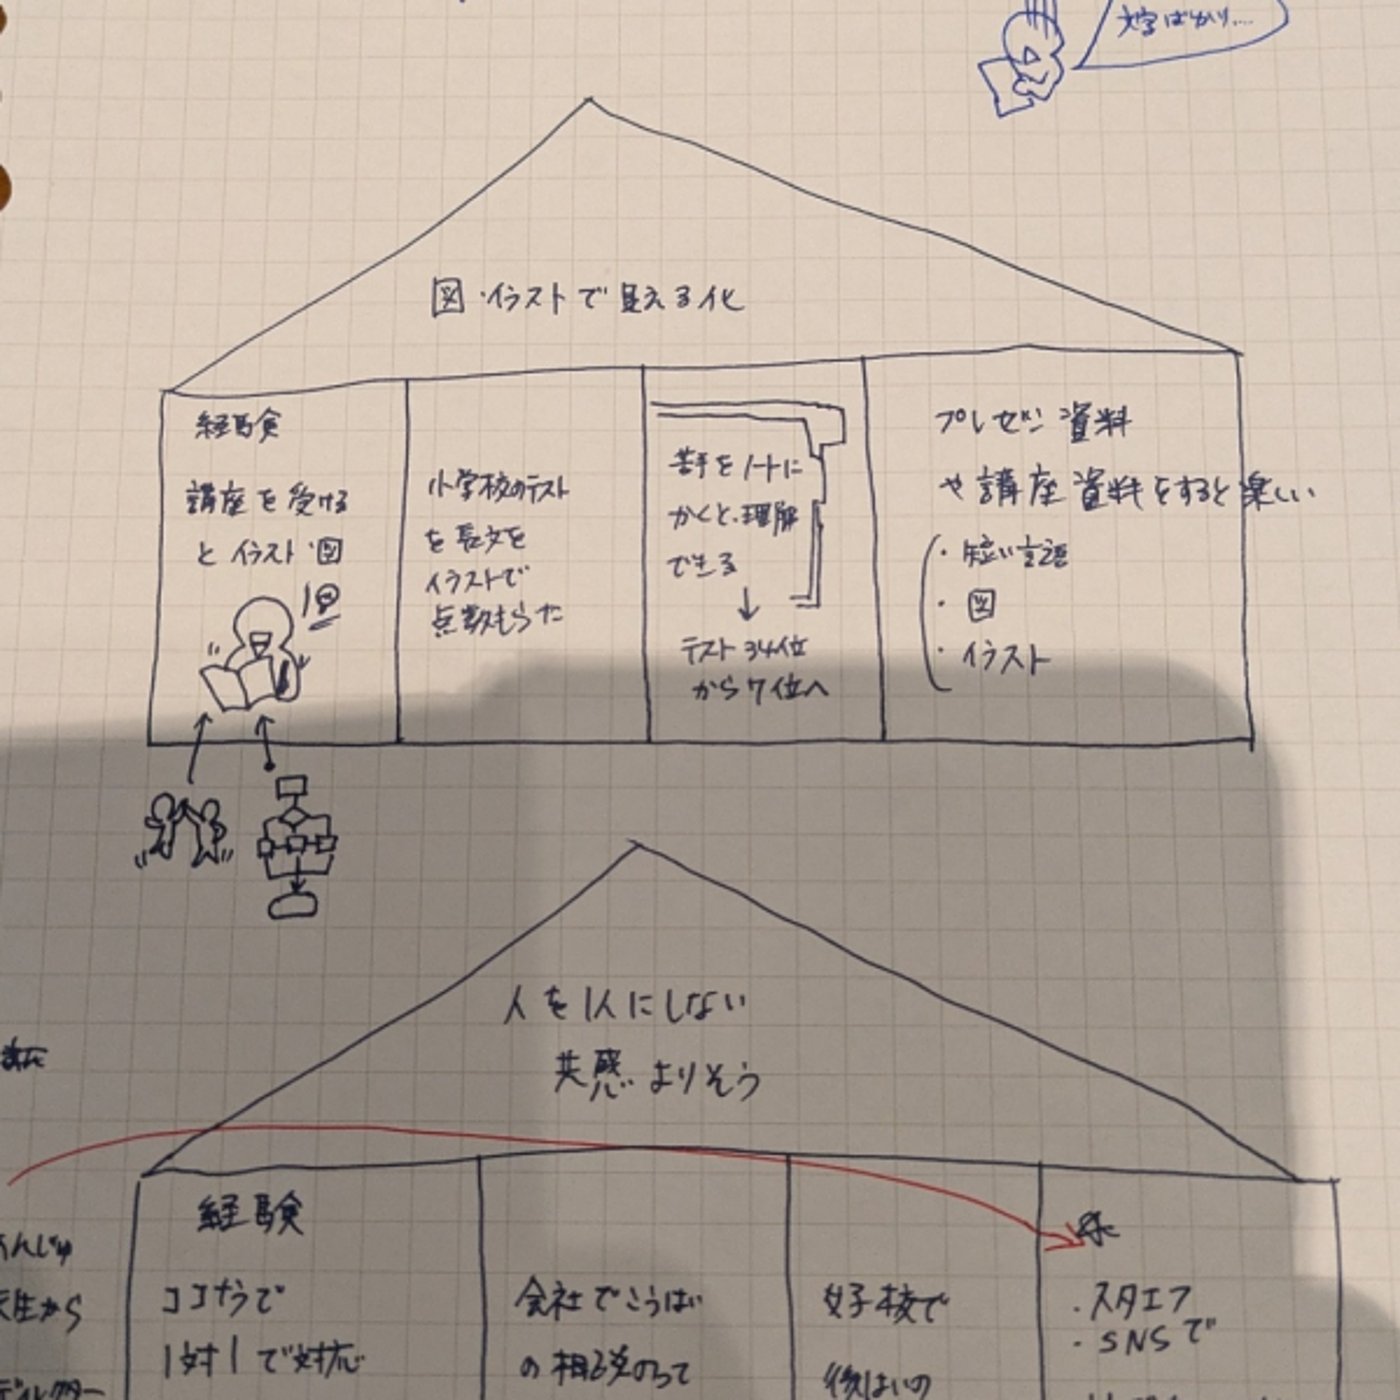 文字ばかり…
図・イラストで見える化
経験
講座を受ける
と イラスト・図
小学校のテスト
を長文を
イラストで
点数もらった
苦手をノートに
かくと、理解
できる
↓
テスト34位
から7位へ
プレゼン資料
や講座資料をすると楽しい
・短い言語
・図
・イラスト
人を1人にしない
共感 よりそう
経験
ココナラで
1対1で対応
会社でこうはい
の相談のって
女子校で
後はいの
・スタエフ
・SNSで